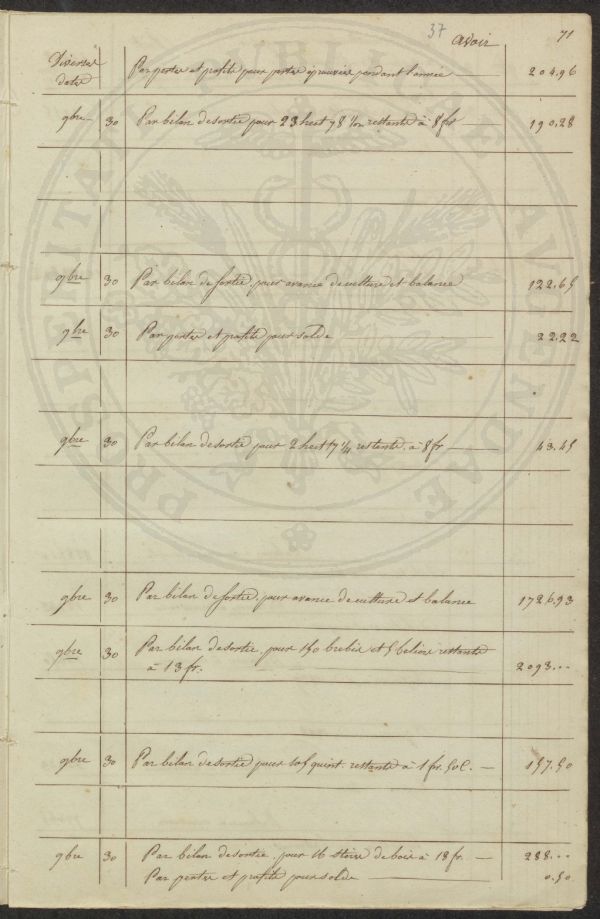 37
avoir 71
Diverses
dates Par pertes et profits pour pertes éprouvées pendant l'année 204,96
9bre 30 Par bilan de sortie pour 23 hect 78 restants à 8 fr 190,28
9bre 30 Par bilan de sortie, pour avance de culture et balance 122,65
9bre 30 Par pertes et profits pour solde 22,22
9bre 30 Par bilan de sortie pour 2 hect 17 1/4 restants à 8 fr 43.45
9bre 30 Par bilan de sortie, pour avance de culture et balance 1726,93
9bre 30 Par bilan de sortie, pour 150 brebis et 5 beliers restants
à 13 fr. 2093...
9bre 30 Par bilan de sortie pour 105 quint. restants à 1 fr. 50 C. 157.50
9bre 30 Par bilan de sortie, pour 16 stères de bois à 18 fr. 288...
Par pertes et profits pour solde 0.50
PROSPERITATI PUBLICAE AUGENDAE